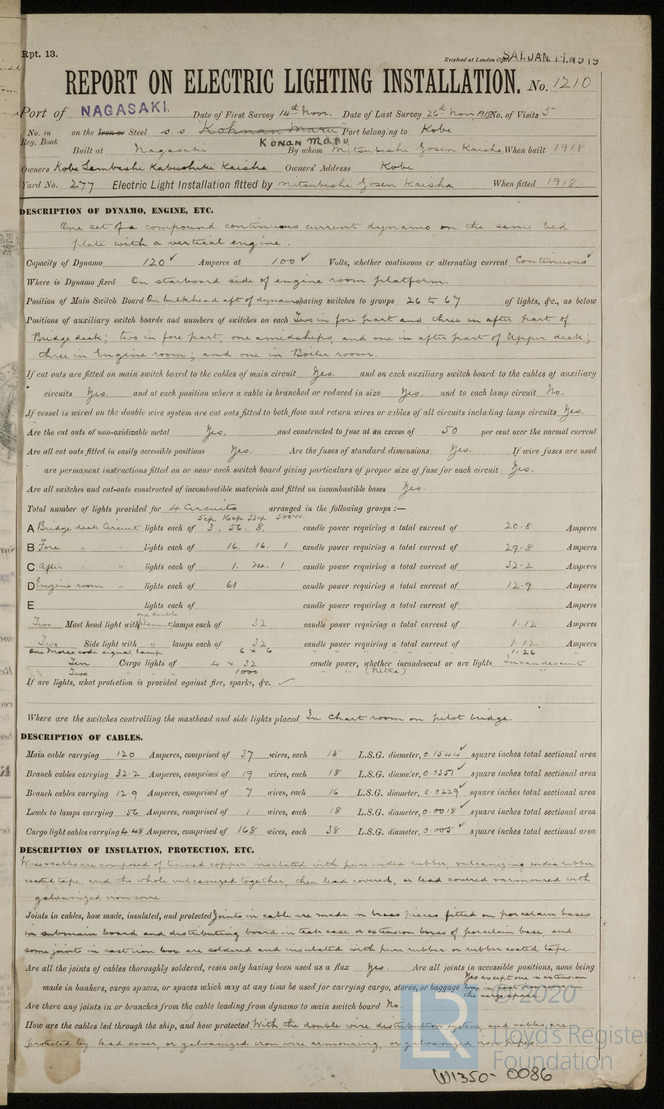 Rpt. 13.
Received at London Office SAT. JAN. 11. 1919
REPORT ON ELECTRIC LIGHTING INSTALLATION. No. 1210
Port of NAGASAKI. Date of First Survey 14th Nov. Date of Last Survey 26th Nov. 1918 No. of Visits 5
No. in Reg. Book on the Iron or Steel s s "Kohnan Maru" Port belonging to Kobe
KONAN MARU
Built at Nagasaki By whom Mitsubishi Zosen Kaisha When built 1918
Owners Kobe Sambashi Kabushiki Kaisha Owners' Address Kobe
Yard No. 277 Electric Light Installation fitted by Mitsubishi Zosen Kaisha When fitted 1918
DESCRIPTION OF DYNAMO, ENGINE, ETC.
One set of a compound continuous current dynamo on the same bed
plate with a vertical engine.
Capacity of Dynamo 120 ✓ Amperes at 100 ✓ Volts, whether continuous or alternating current Continuous ✓
Where is Dynamo fixed On starboard side of engine room platform.
Position of Main Switch Board On bulkhead aft of dynamo having switches to groups 26 to 67 of lights, &c., as below
Positions of auxiliary switch boards and numbers of switches on each Two in fore part and three in after part of
Bridge deck; two in fore part, one amidships, and one in after part of Upper deck;
three in Engine room; and one in Boiler room.
If cut outs are fitted on main switch board to the cables of main circuit Yes. and on each auxiliary switch board to the cables of auxiliary
circuits Yes. and at each position where a cable is branched or reduced in size Yes. and to each lamp circuit No.
If vessel is wired on the double wire system are cut outs fitted to both flow and return wires or cables of all circuits including lamp circuits Yes.
Are the cut outs of non-oxidizable metal Yes. and constructed to fuse at an excess of 50 per cent over the normal current
Are all cut outs fitted in easily accessible positions Yes. Are the fuses of standard dimensions Yes. If wire fuses are used
are permanent instructions fitted on or near each switch board giving particulars of proper size of fuse for each circuit Yes.
Are all switches and cut-outs constructed of incombustible materials and fitted on incombustible bases Yes.
Total number of lights provided for 4 Circuits arranged in the following groups :—
5cp. 16cp. 32cp. 500w.
A Bridge deck Circuit lights each of 3. 56. 8. candle power requiring a total current of 20.8 Amperes
B Fore " " lights each of 16. 16. 1 candle power requiring a total current of 29.8 Amperes
C After " " lights each of 1. 24. 1 candle power requiring a total current of 32.2 Amperes
D Engine room " lights each of 61 candle power requiring a total current of 12.9 Amperes
E lights each of candle power requiring a total current of Amperes
Two Mast head light with one double filament lamps each of 32 candle power requiring a total current of 1.12 Amperes
Two Side light with " lamps each of 32 candle power requiring a total current of 1.12 Amperes
One Morse code signal lamp 6 x 6 " " " " " 1.26 "
Ten Cargo lights of 4 x 32 candle power, whether incandescent or arc lights Incandescent
Two " " 1000 " "
If arc lights, what protection is provided against fire, sparks, &c. ✓
Where are the switches controlling the masthead and side lights placed In chart room on pilot bridge.
DESCRIPTION OF CABLES.
Main cable carrying 120 Amperes, comprised of 37 wires, each 15 L.S.G. diameter, 0.1544 ✓ square inches total sectional area
Branch cables carrying 32.2 Amperes, comprised of 19 wires, each 18 L.S.G. diameter, 0.0351 ✓ square inches total sectional area
Branch cables carrying 12.9 Amperes, comprised of 7 wires, each 16 L.S.G. diameter, 0.0229 ✓ square inches total sectional area
Leads to lamps carrying .56 Amperes, comprised of 1 wires, each 18 L.S.G. diameter, 0.0018 ✓ square inches total sectional area
Cargo light cables carrying 4.48 Amperes, comprised of 168 wires, each 38 L.S.G. diameter, 0.005 ✓ square inches total sectional area
DESCRIPTION OF INSULATION, PROTECTION, ETC.
Wires & cables are composed of tinned copper insulated with pure india rubber vulcanizing india rubber
coated tape, and the whole vulcanized together, then lead covered, or lead covered & armoured with
galvanized iron wire.
Joints in cables, how made, insulated, and protected Joints in cable are made in brass pieces fitted on porcelain bases
in submain board and distributing board in teak case or extension boxes of porcelain base, and
some joints in cast iron box are soldered and insulated with pure rubber or rubber coated tape.
Are all the joints of cables thoroughly soldered, resin only having been used as a flux Yes. Are all joints in accessible positions, none being
made in bunkers, cargo spaces, or spaces which may at any time be used for carrying cargo, stores, or baggage Yes except one in extension
the cargo space.
Are there any joints in or branches from the cable leading from dynamo to main switch board No.
How are the cables led through the ship, and how protected With the double wire distribution system, and cables are
protected by lead cover, or galvanized iron wire armouring, or galvanized iron pipe.
© 2020
LR
Lloyd's Register
Foundation
W1350-0086